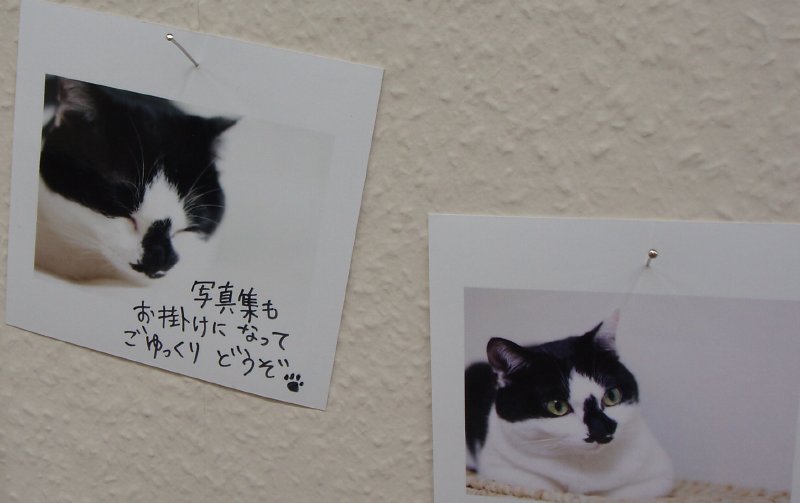 写真集も
お掛けになって
ごゆっくり どうぞ